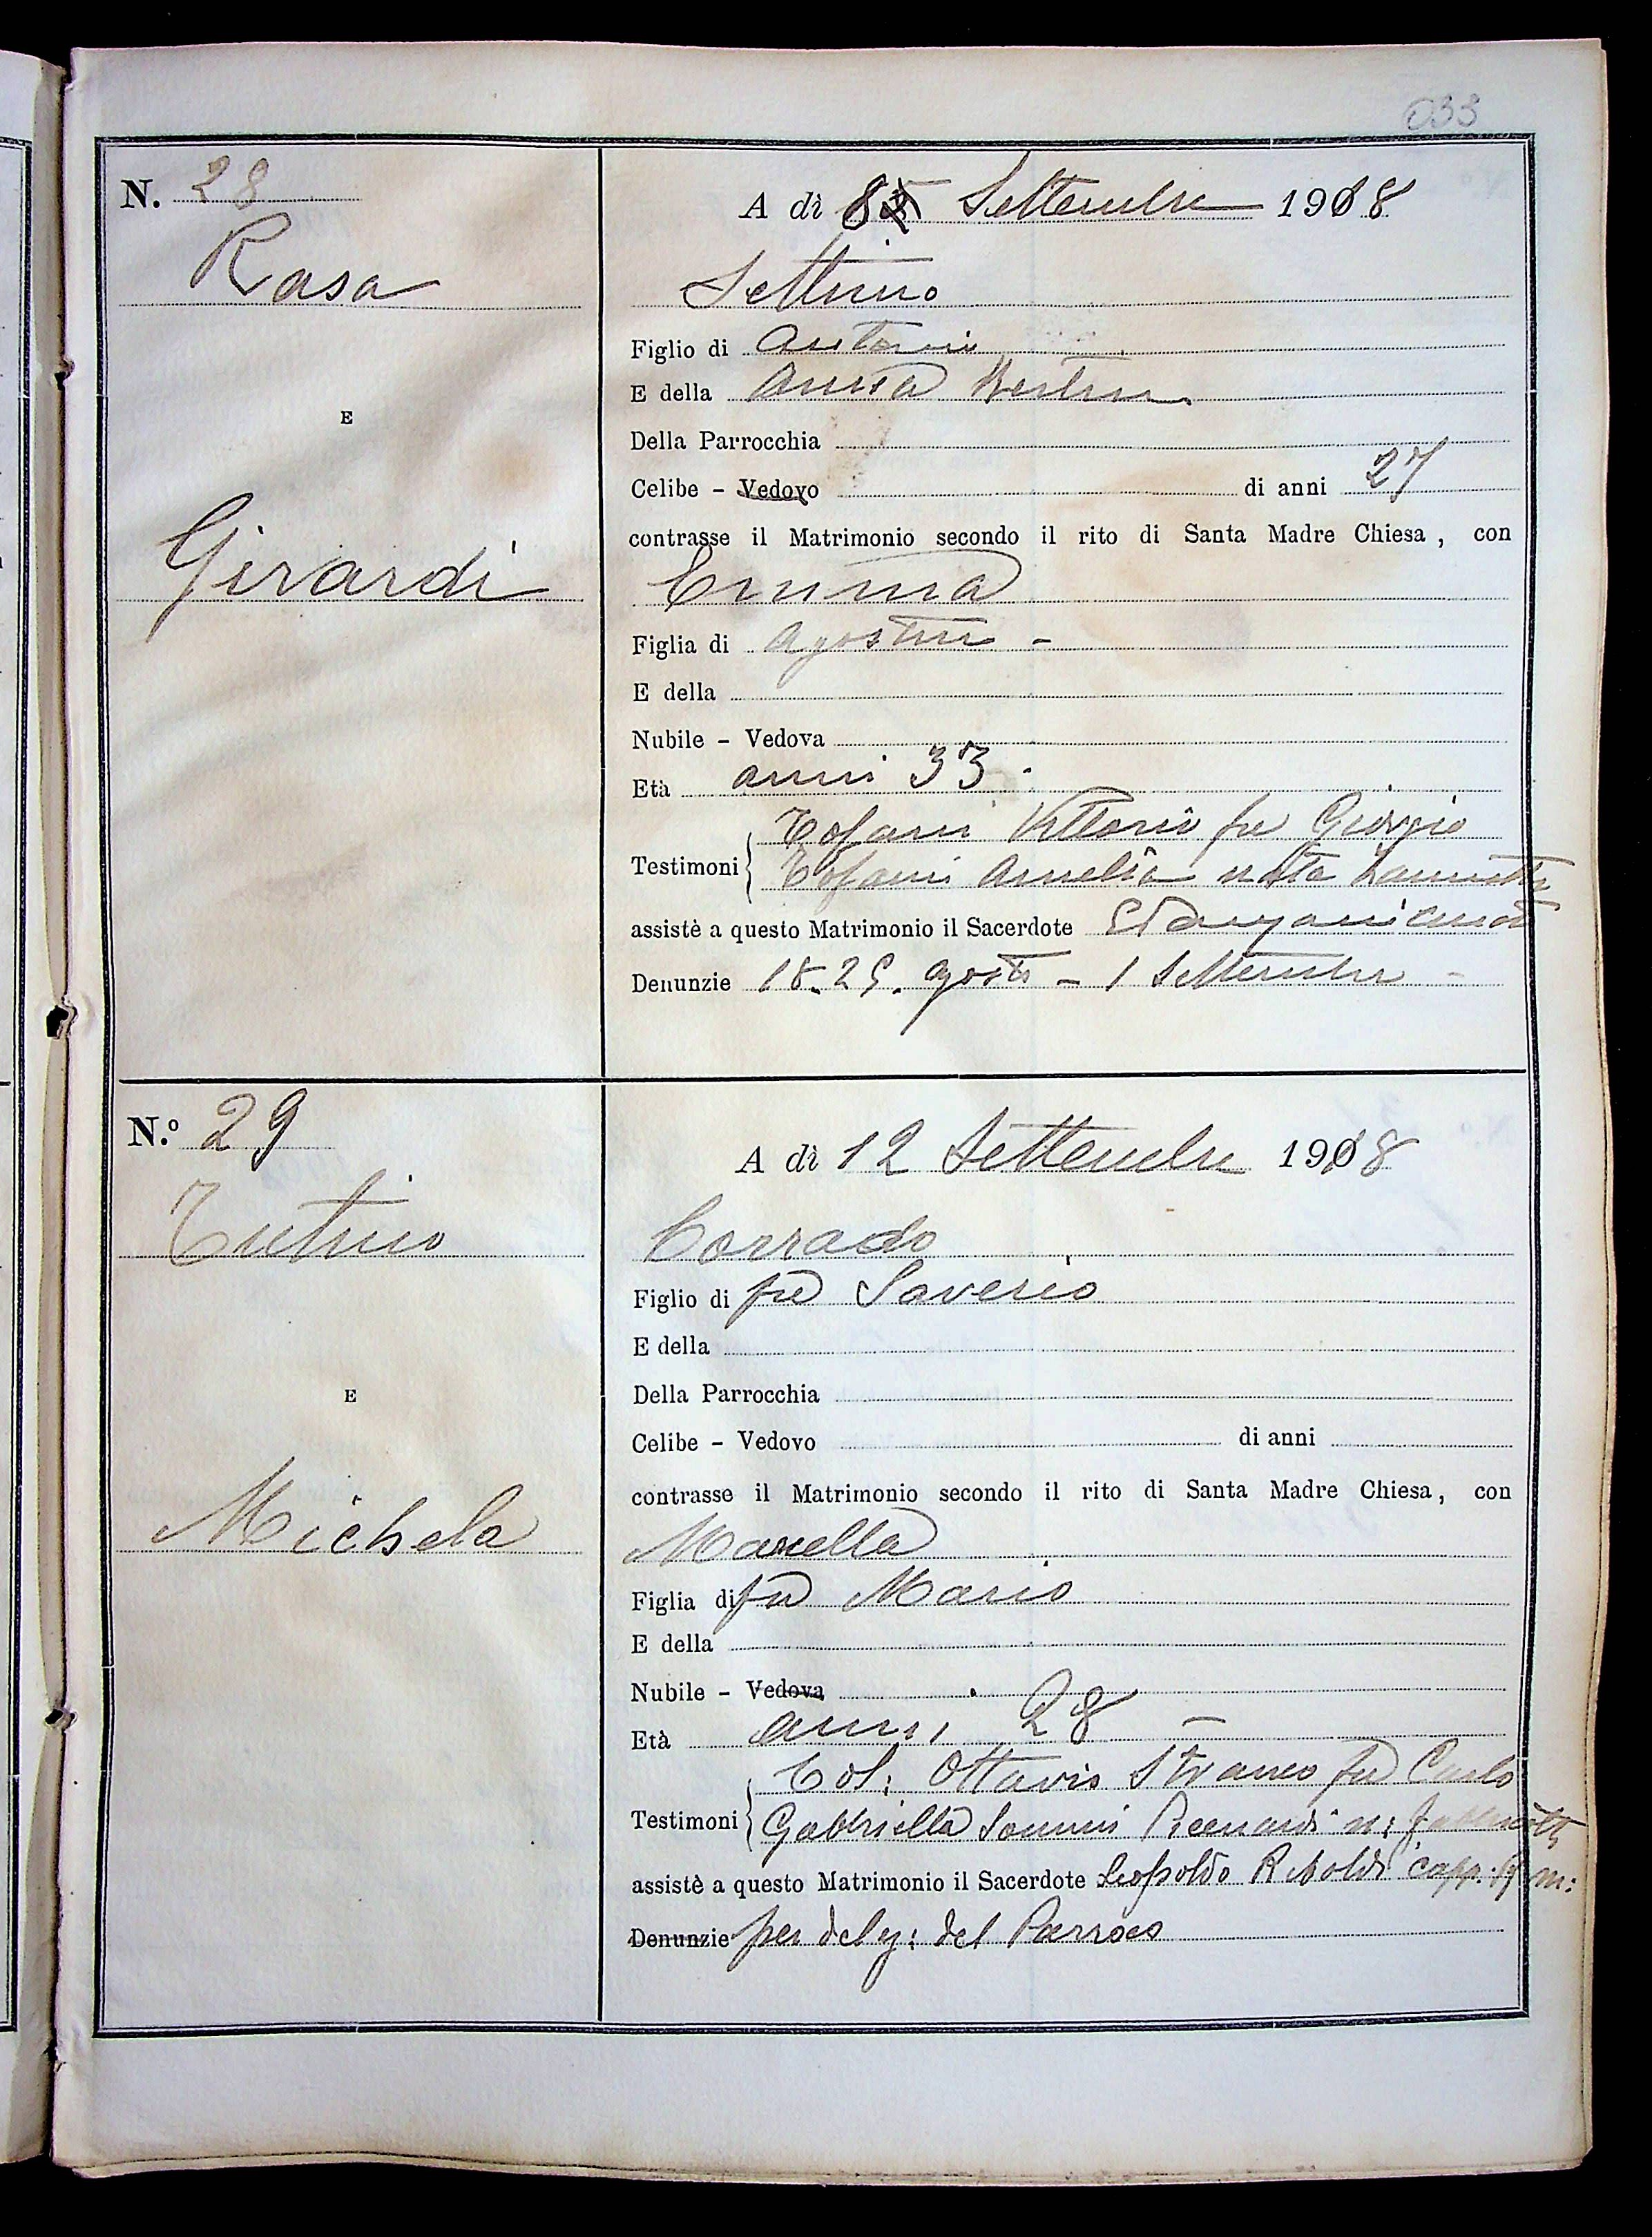 033
N. 28
A dì 8 Settembre 1918
Rasa
Settimo
Figlio di Antonio
E della Anna
E
Della Parrocchia
Celibe - Vedovo di anni 27
contrasse il Matrimonio secondo il rito di Santa Madre Chiesa, con
Girardi
Emma
Figlia di Agostino -
E della
Nubile - Vedova
Età anni 33.
Tofani Vittorio fu Giorgio
Testimoni
Tofani Amelia nata
assistè a questo Matrimonio il Sacerdote
Denunzie 18. 25. Agosto - 1 Settembre -
N.º 29
A dì 12 Settembre 1918
Tutino
Corrado
Figlio di fu Saverio
E della
E
Della Parrocchia
Celibe - Vedovo di anni
contrasse il Matrimonio secondo il rito di Santa Madre Chiesa, con
Michela
Figlia di fu Mario
E della
Nubile - Vedova
Età anni 28 -
Col: Ottavio Straneo fu Carlo
Testimoni
Gabriella Sommi Picenardi n:
assistè a questo Matrimonio il Sacerdote Leopoldo Riboldi capp. m:
Denunzie per deleg: del Parroco